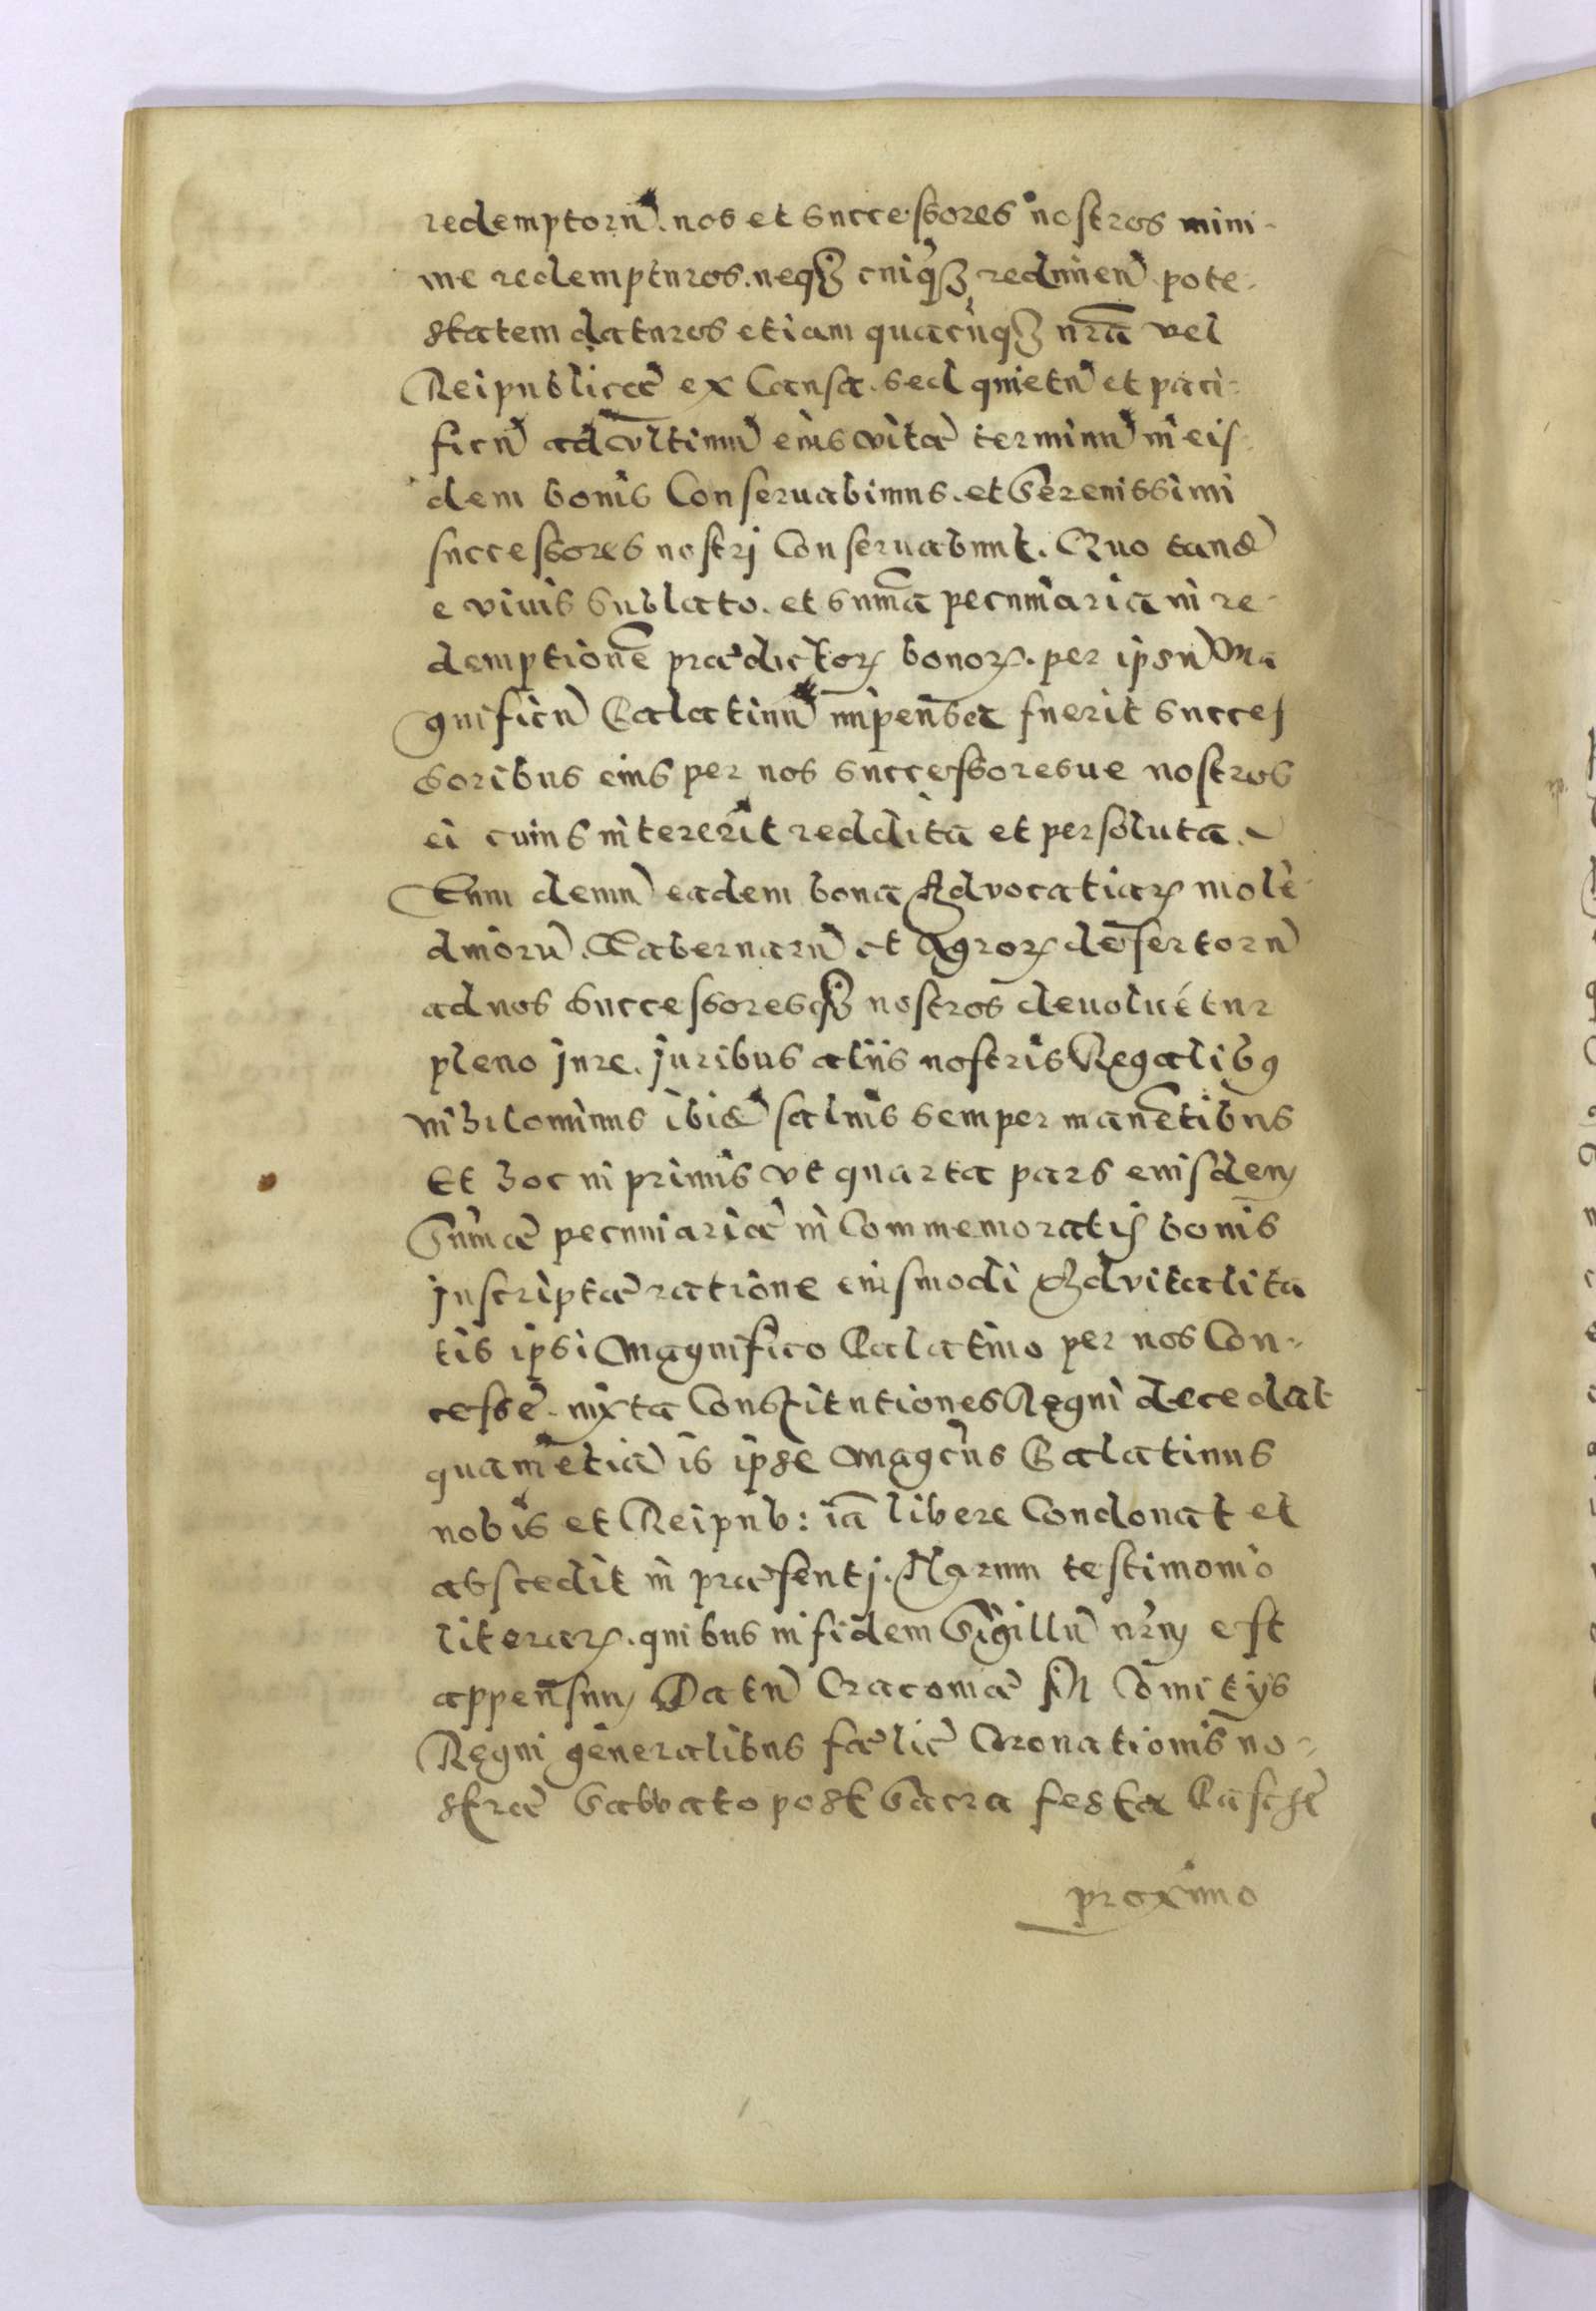 redemptorũ. nos et successores nostros mini-
me redempturos. neqꝫ cuiqꝫ redimen̄ pote-
statem daturos etiam quacũqꝫ nr̃a vel
Reipublicæ ex Causa. sed quietũ et paci-
ficũ ad vltimũ eius vitæ terminũ in eis-
dem bonis Conseruabimus. et Serenissimi
successores nostrj Conseruabunt. Quo tandẽ
e viuis sublato. et sum̃a pecuniaria in re-
demptionẽ prædictoꝝ bonoꝝ. per ipsũ Ma
gnificũ Palatinũ impensa fuerit succes
soribus eius per nos successoresue nostros
ei cuius intererit reddita et persoluta.
Tum demũ eadem bona Advocatiaꝝ molẽ-
dinorũ. Tabernarũ et Agroꝝ desertorũ
ad nos Successoresqꝫ nostros deuoluẽtur
pleno jure. juribus aliis nostris Regalibꝰ
nihilominus ibidẽ saluis semper manẽtibus
Et hoc in primis vt quarta pars eiusdem
Sum̃æ pecuniariæ in Commemoratis bonis
jnscriptæ ratione eiusmodi Advitalita
tis ipsi Magnifico Palatino per nos Con-
cessæ. iuxta Constitutiones Regni decedat
quam etiã is ipse Magcus Palatinus
nobis et Reipub: iã libere Condonat et
abscedit in præsentj. Harum testimonio
literaꝝ. quibus in fidem Sigillũ nr̃m est
appensum Datũ Cracouiæ In Comitijs
Regni generalibus fælic̃ Coronationis no-
stræ Sabbato post Sacra festa Paschæ
proximo